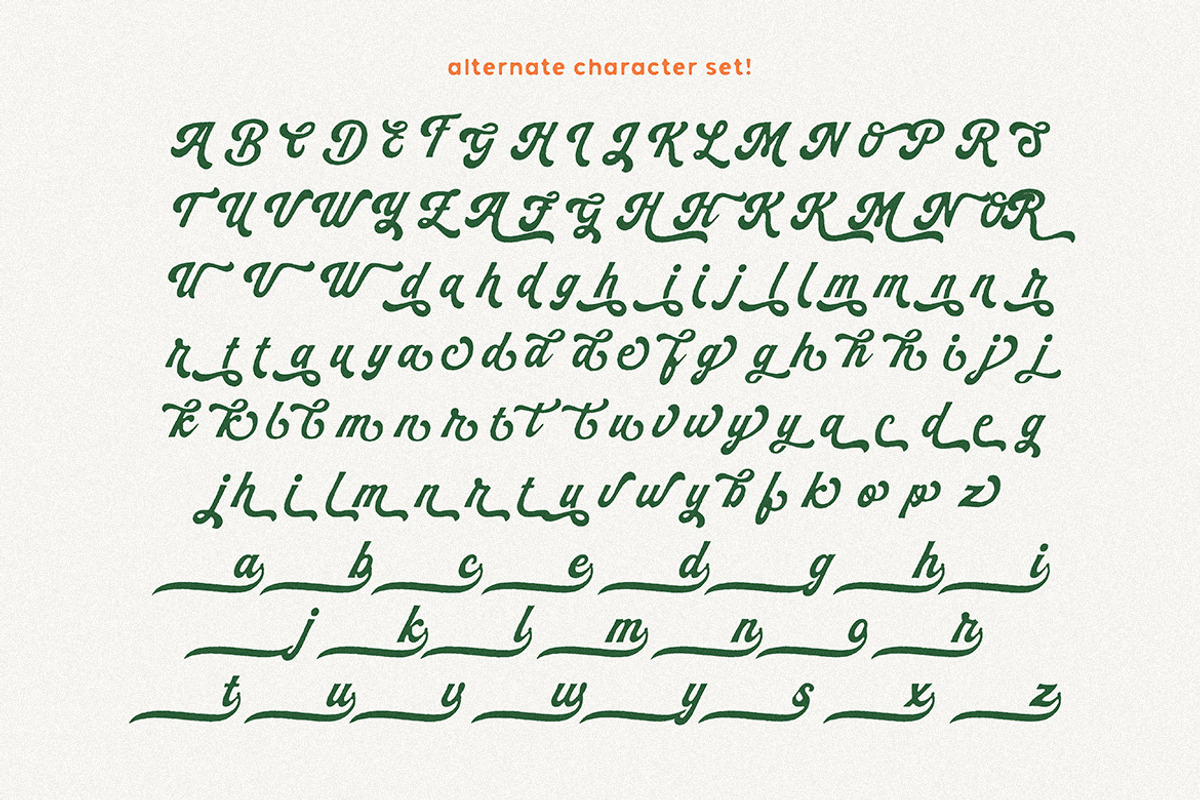 alternate character set!
A B C D E F G H I J K L M N O P R S
T U V W Y Z A F G H H K K M N O R
U V W d a h d g h i i j l l m m n n r
r t t a u y a c d d d e f g g h h h i j j
k k l l m n r t t t u v w y y a c d e g
j h i l m n r t u v w y b f k o p z
a b c e d g h i
j k l m n o r
t u v w y s x z